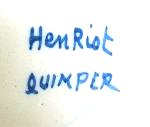 HenRiot
QUIMPER